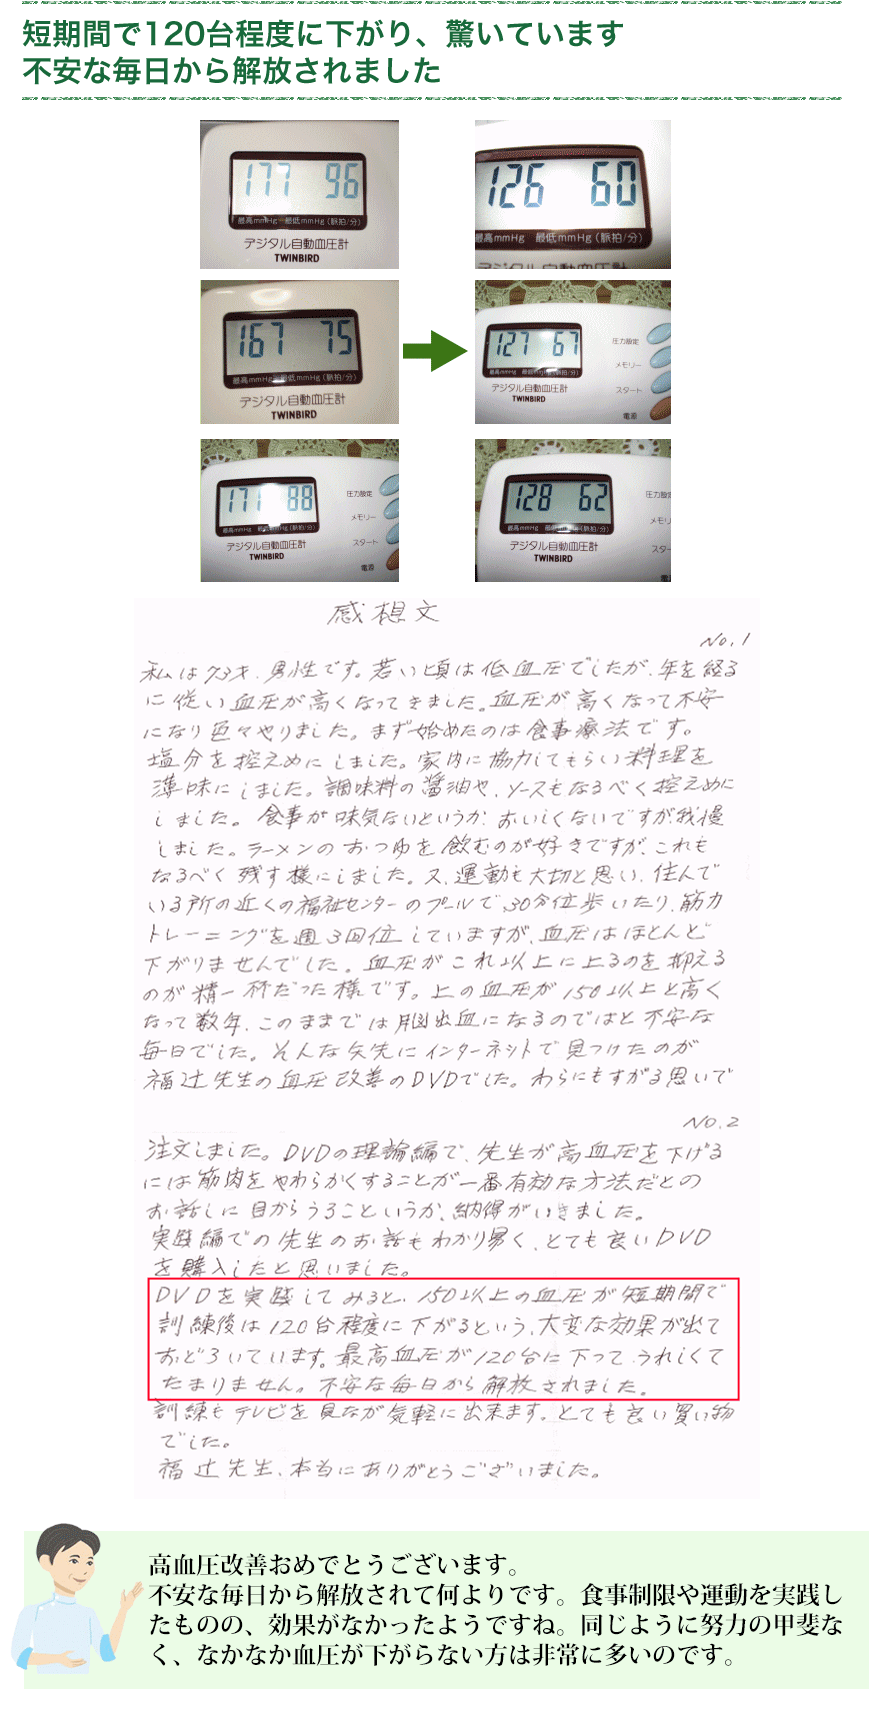 短期間で120台程度に下がり、驚いています
不安な毎日から解放されました
177 96
最高mmHg 最低mmHg (脈拍/分)
デジタル自動血圧計
TWINBIRD
126 60
最高mmHg 最低mmHg (脈拍/分)
デジタル自動血圧計
167 75
最高mmHg 最低mmHg (脈拍/分)
デジタル自動血圧計
TWINBIRD
127 67
最高mmHg 最低mmHg (脈拍/分)
デジタル自動血圧計
TWINBIRD
圧力設定
メモリー
スタート
電源
171 88
最高mmHg 最低mmHg (脈拍/分)
デジタル自動血圧計
TWINBIRD
圧力設定
メモリー
スタート
電源
128 62
最高mmHg 最低mmHg (脈拍/分)
デジタル自動血圧計
TWINBIRD
圧力設
メモリ
スター
電源
感想文
No.1
私は73才、男性です。若い頃は低血圧でしたが、年を経る
に従い血圧が高くなってきました。血圧が高くなって不安
になり色々やりました。まず始めたのは食事療法です。
塩分を控えめにしました。家内に協力してもらい料理を
薄味にしました。調味料の醤油や、ソースもなるべく控えめに
しました。食事が味気ないというか、おいしくないですが我慢
しました。ラーメンのおつゆを飲むのが好きですが、これも
なるべく残す様にしました。又、運動も大切と思い、住んで
いる所の近くの福祉センターのプールで、30分位歩いたり、筋力
トレーニングを週3回位していますが、血圧はほとんど
下がりませんでした。血圧がこれ以上に上るのを抑える
のが精一杯だった様です。上の血圧が150以上と高く
なって数年、このままでは脳出血になるのではと不安な
毎日でした。そんな矢先にインターネットで見つけたのが
福辻先生の血圧改善のDVDでした。わらにもすがる思いで
No.2
注文しました。DVDの理論編で、先生が高血圧を下げる
には筋肉をやわらかくすることが一番有効な方法だとの
お話しに目からうろこというか、納得がいきました。
実践編での先生のお話もわかり易く、とても良いDVD
を購入したと思いました。
DVDを実践してみると、150以上の血圧が短期間で
訓練後は120台程度に下がるという、大変な効果が出て
おどろいています。最高血圧が120台に下って、うれしくて
たまりません。不安な毎日から解放されました。
訓練もテレビを見なが気軽に出来ます。とても良い買い物
でした。
福辻先生、本当にありがとうございました。
高血圧改善おめでとうございます。
不安な毎日から解放されて何よりです。食事制限や運動を実践し
たものの、効果がなかったようですね。同じように努力の甲斐な
く、なかなか血圧が下がらない方は非常に多いのです。